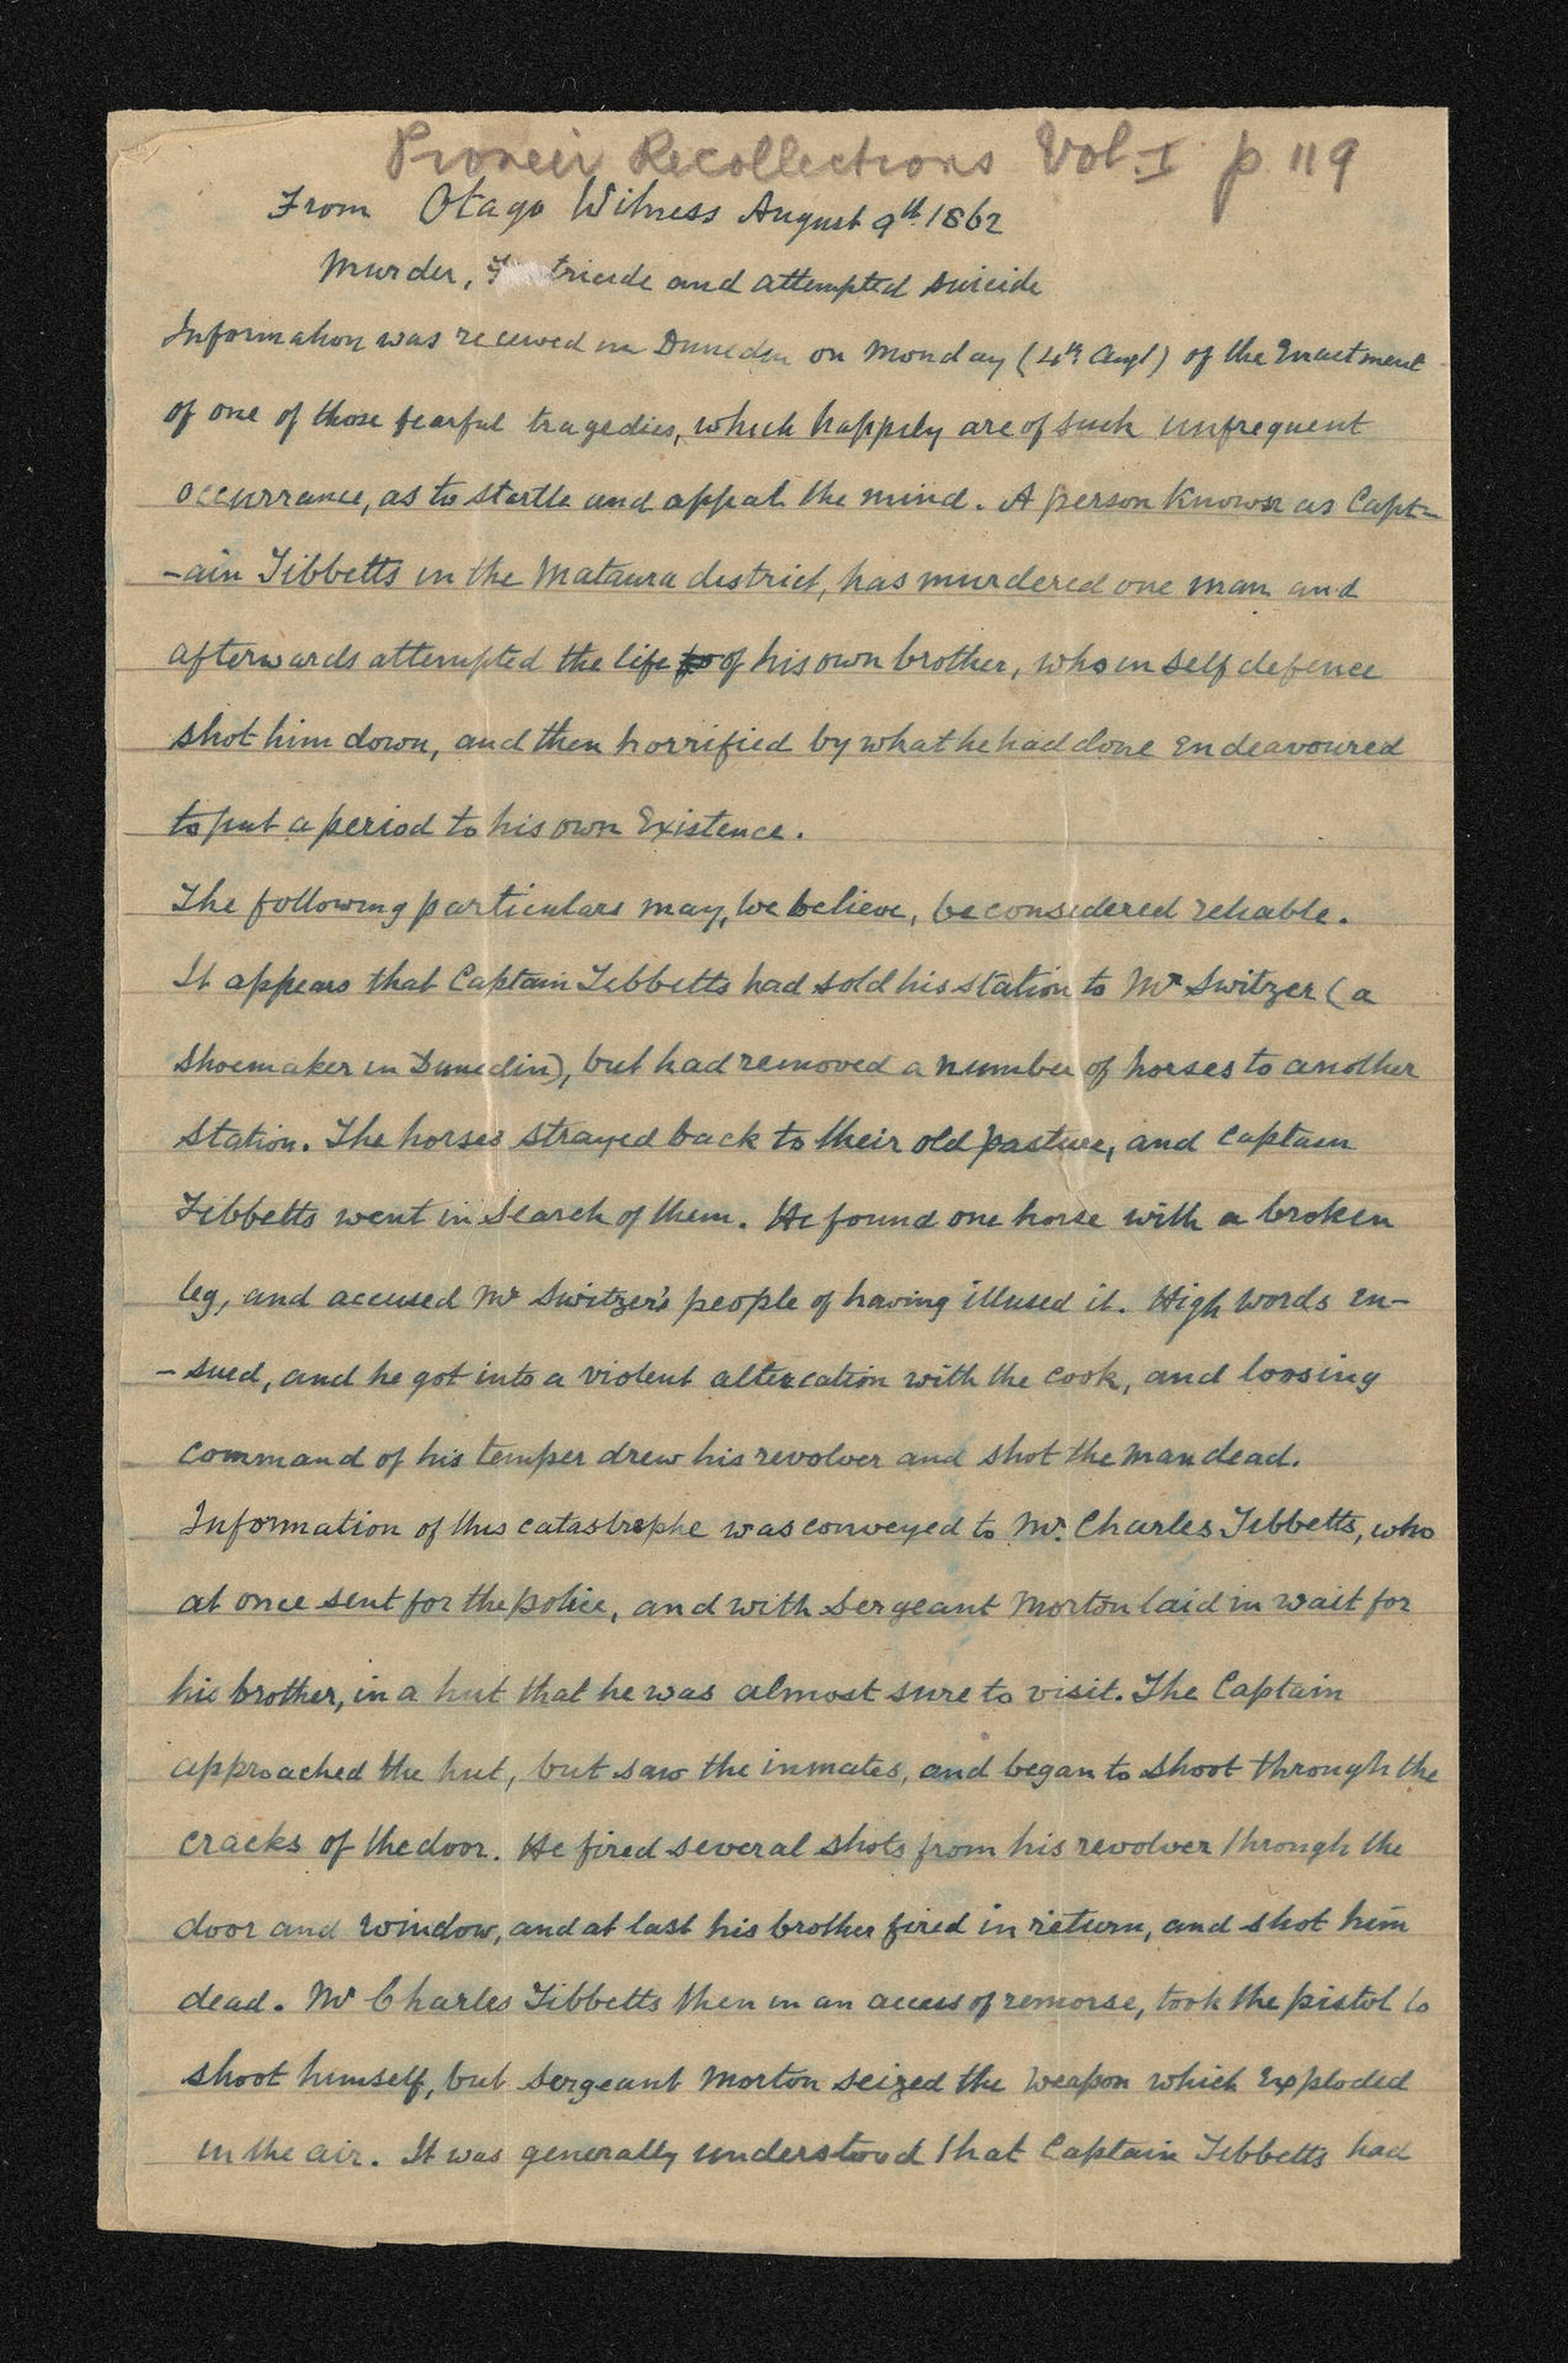 Pioneer Recollections Vol. I p 119
From Otago Witness August 9th 1862
Murder, tricide and attempted suicide
Information was received in Dunedin on Monday (4th Augt) of the Enactment
of one of those fearful tragedies, which happily are of such unfrequent
occurrance, as to startle and appal the mind. A person known as Capt-
-ain Tibbetts in the Mataura district, has murdered one man and
afterwards attempted the life of his own brother, who in self defence
shot him down, and then horrified by what he had done Endeavoured
to put a period to his own Existence.
The following particulars may, we believe, be considered reliable.
It appears that Captain Tibbetts had sold his station to Mr Switzer (a
shoemaker in Dunedin), but had removed a number of horses to another
station. The horses strayed back to their old pasture, and Captain
Tibbetts went in search of them. He found one horse with a broken
leg, and accused Mr Switzer's people of having illused it. High words en-
-sued, and he got into a violent altercation with the cook, and loosing
command of his temper drew his revolver and shot the man dead.
Information of this catastrophe was conveyed to Mr. Charles Tibbetts, who
at once sent for the police, and with Sergeant Morton laid in wait for
his brother, in a hut that he was almost sure to visit. The Captain
approached the hut, but saw the inmates, and began to shoot through the
cracks of the door. He fired several shots from his revolver through the
door and window, and at last his brother fired in return, and shot him
dead. Mr Charles Tibbetts then in an access of remorse, took the pistol to
shoot himself, but Sergeant Morton seized the weapon which Exploded
in the air. It was generally understood that Captain Tibbetts had